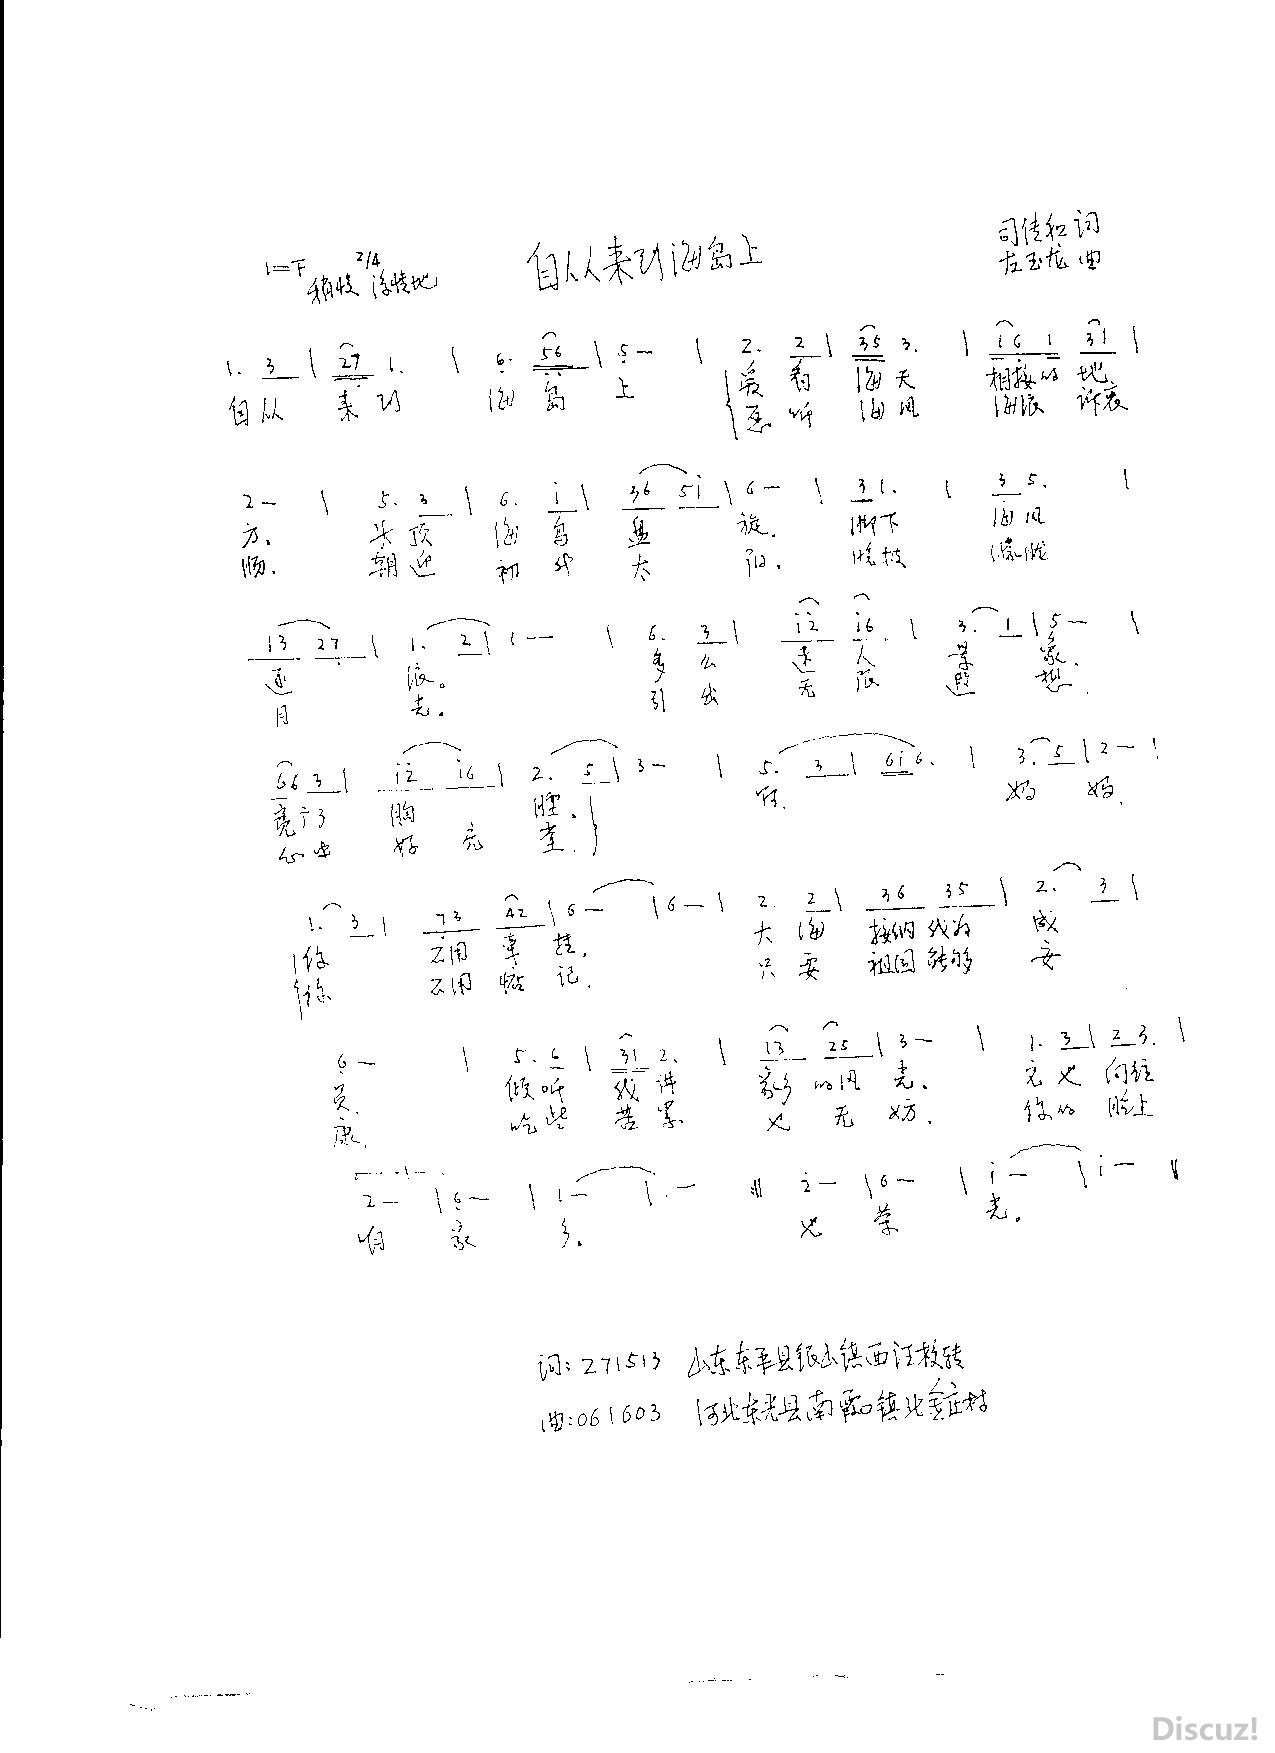 自从来到海岛上
司传和 词
左玉龙 曲
1=F 2/4
稍慢 深情地
1. 3 | 27 1. | 6. 56 | 5 — | 2. 2 | 35 3. | i6 1 31 |
自从 来到 海岛 上 爱看 海天 相接的 地
愿听 海风 海浪 诉衷
2 — | 5. 3 | 6. i | 36 5i | 6 — | 31. | 35. |
方。 头顶 海鸟 盘 旋. 脚下 海风
肠. 朝迎 初升 太 阳. 晚披 朦胧
13 27 | 1. 2 | 1 — — | 6. 3 | i2 i6. | 3. 1 | 5 — |
逐 浪。 多么 迷人 景 象.
月 光. 引出 无限 遐 想.
66 3 | i2 i6 | 2. 5 | 3 — | 5. 3 | 6i 6. | 3. 5 | 2 — |
亮了 胸 膛. 啊. 妈 妈.
心中 好 亮 堂.
1. 3 | 73 42 | 6 — | 6 — | 2. 2 | 36 35 | 2. 3 |
你 不用 牵 挂. 大海 接纳 我为 成
你 不用 惦 记. 只要 祖国 能够 安
6 — | 5. 6 | 31 2. | 13 25 | 3 — | 1. 3 | 2 3. |
员. 倾听 我讲 家乡 的风 光. 它也 向往
康. 吃些 苦累 也 无 妨. 你的 脸上
2 — | 6 — | 1 — | 1. — 2 — | 6 — | i — | i —
咱 家 乡. 也 荣 光。
词:271513 山东东平县银山镇西汪村转
曲:061603 河北东光县南霞口镇北金庄村
Discuz!